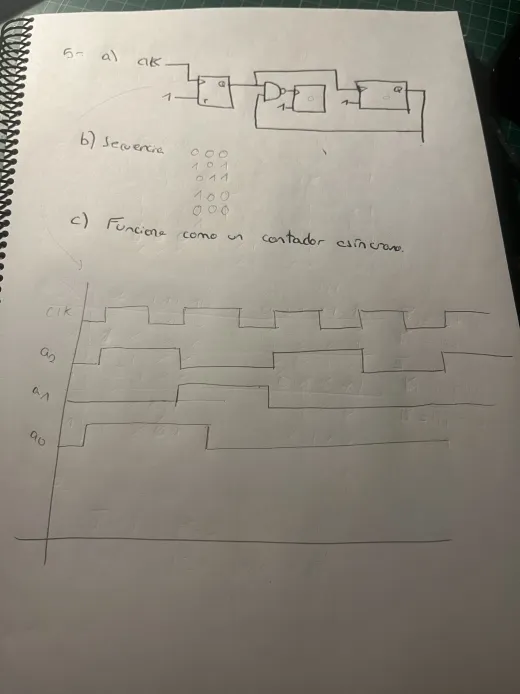 5- a) CLK
Q
1
T
1
1
Q
b) Secuencia
000
101
011
100
000
c) Funciona como un contador asíncrono.
CLK
Q2
Q1
Q0